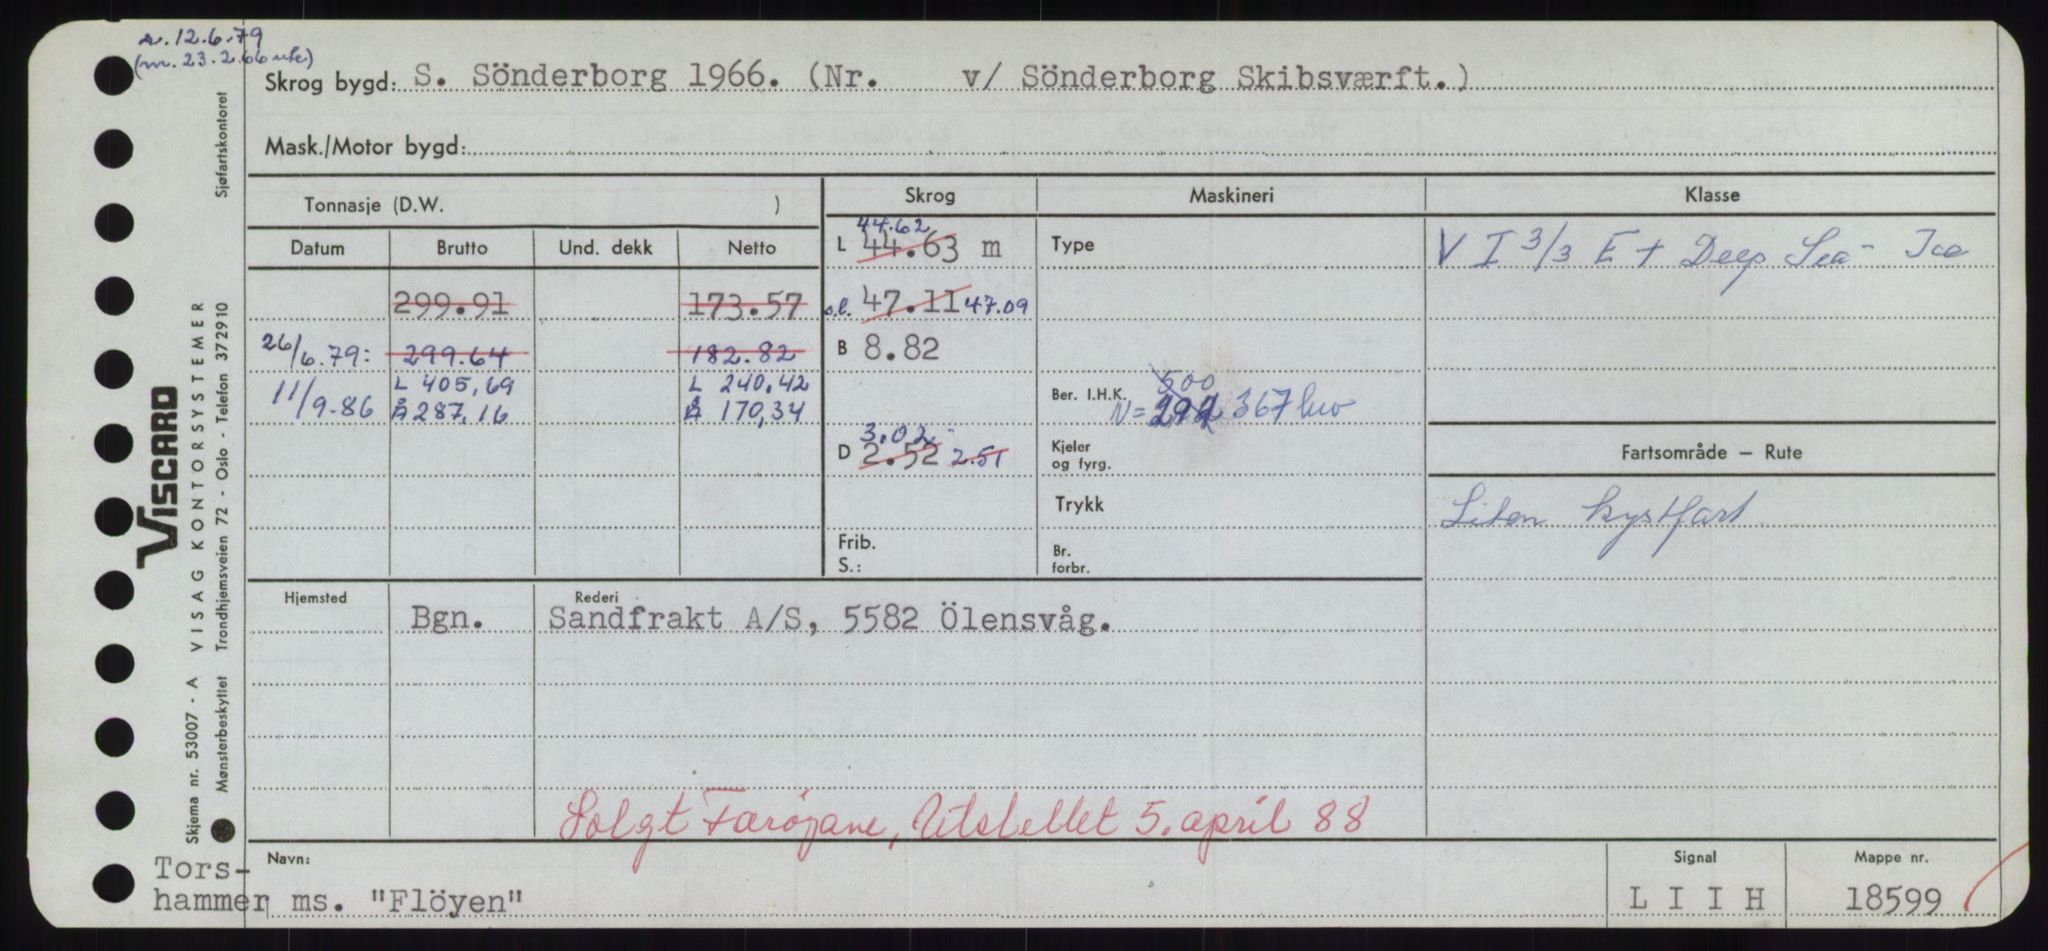 r. 12.6.79
(m. 23.2.66 ufc)
Skrog bygd: S. Sönderborg 1966. (Nr. v/ Sönderborg Skibsværft.)
Mask./Motor bygd:
Tonnasje (D.W. )
Skrog
Maskineri
Klasse
Datum Brutto Und. dekk Netto
L 44.62 44.63 m
Type
V I 3/3 E + Deep Sea - Ice
299.91 173.57
o.l. 47.11 47.09
26/6.79: 299.64 182.82
B 8.82
11/9-86 L 405,69 L 240,42
Å 287,16 Å 170,34
Ber. I.H.K. 500
N= 292 367 kw
D 3.02 2.52 2.51
Kjeler
og fyrg.
Fartsområde — Rute
Trykk
Liten kystfart
Frib.
S.:
Br.
forbr.
Hjemsted Rederi
Bgn. Sandfrakt A/S, 5582 Ölensvåg.
Solgt Færøyane, Utslettet 5. april 88
Navn: Signal Mappe nr.
Tors-
hammer ms. "Flöyen" L I I H 18599
Skjema nr. 53007 - A VISAG KONTORSYSTEMER
Mønsterbeskyttet Trondhjemsveien 72 - Oslo - Telefon 372910 Sjøfartskontoret
VISCARD